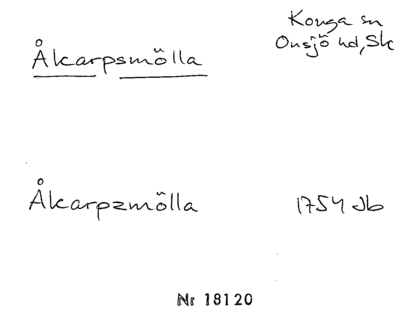 Åkarpsmölla
Konga sn
Onsjö hd, Sk
Åkarpzmölla
1754 Jb
Nr 18120